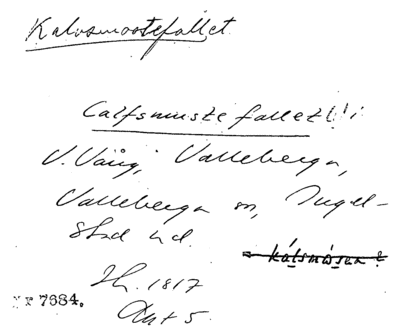 Kalvsmostefallet
Calfsmustefallet(!) i
V. Vång, Valleberga,
Valleberga sn, Ingel-
stad hd.
kálsmåsen?
Sk. 1817
Akt 5.
Nr 7684.